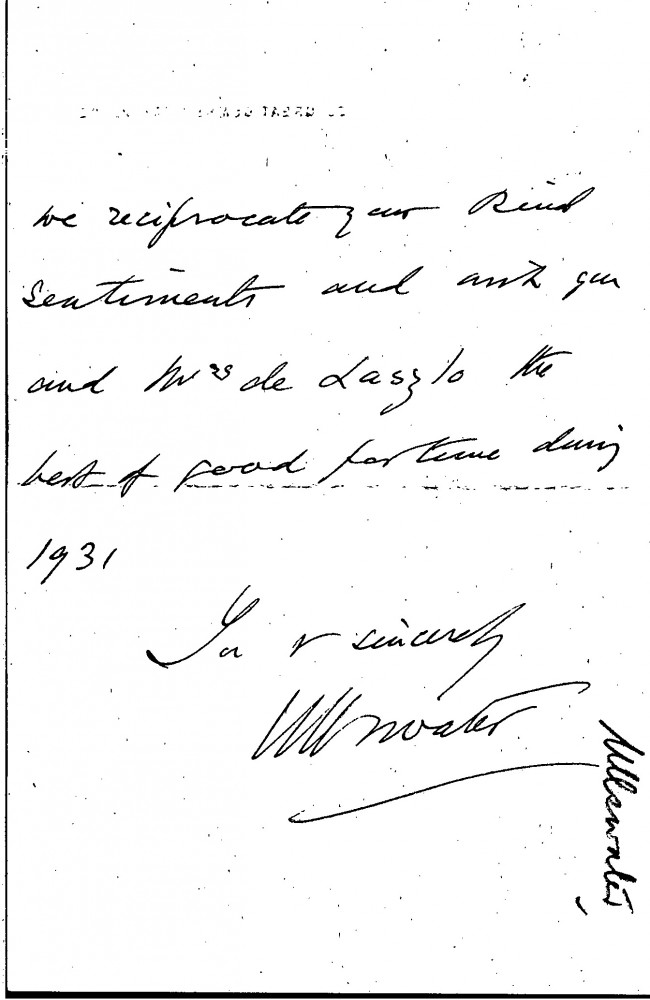 we reciprocate your kind
sentiments and wish you
and Mrs de Laszlo the
best of good fortune during
1931
Yours sincerely
Ullswater
Ullswater